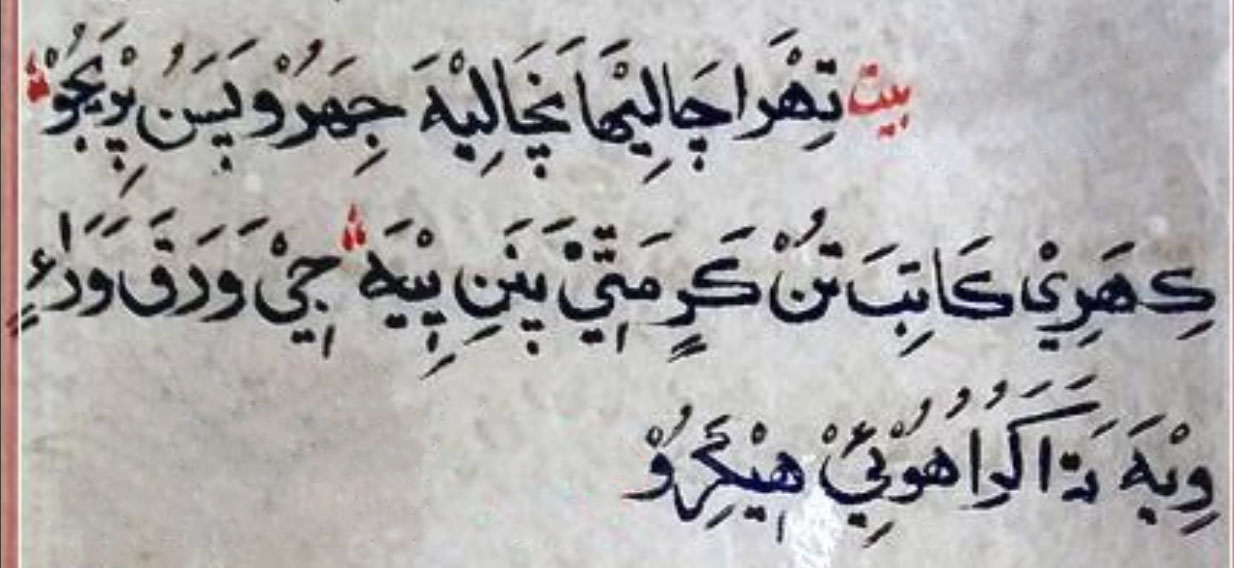 بيت تِهْرَا چَالِيْهَا نَچَالِيْهَ جِهَرُوْ پَسَنُ پِرِيَجُوْ
ڪِهَرِيْ ڪَاتِبَ تُنْ ڪَرٍ مَتِيْ پَنَنِ پِيْهَ جِيْ وَرَقَ وَرَاءٍ
وِيْهَ تَہ اَکَرُ اُهُوْئِيْ هِيْڪِرُوْ